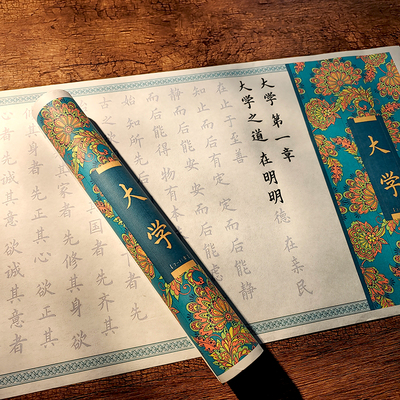 大学
大学 第一章
大学之道 在明明德 在亲民
在止于至善
知止而后有定 定而后能静
静而后能安 安而后能虑
而后能得 物有本
始 知所先后
古之
国者 先齐其
家者 先修其身 欲
其身者 先正其心 欲正其
心者 先诚其意 欲诚其意者
大学